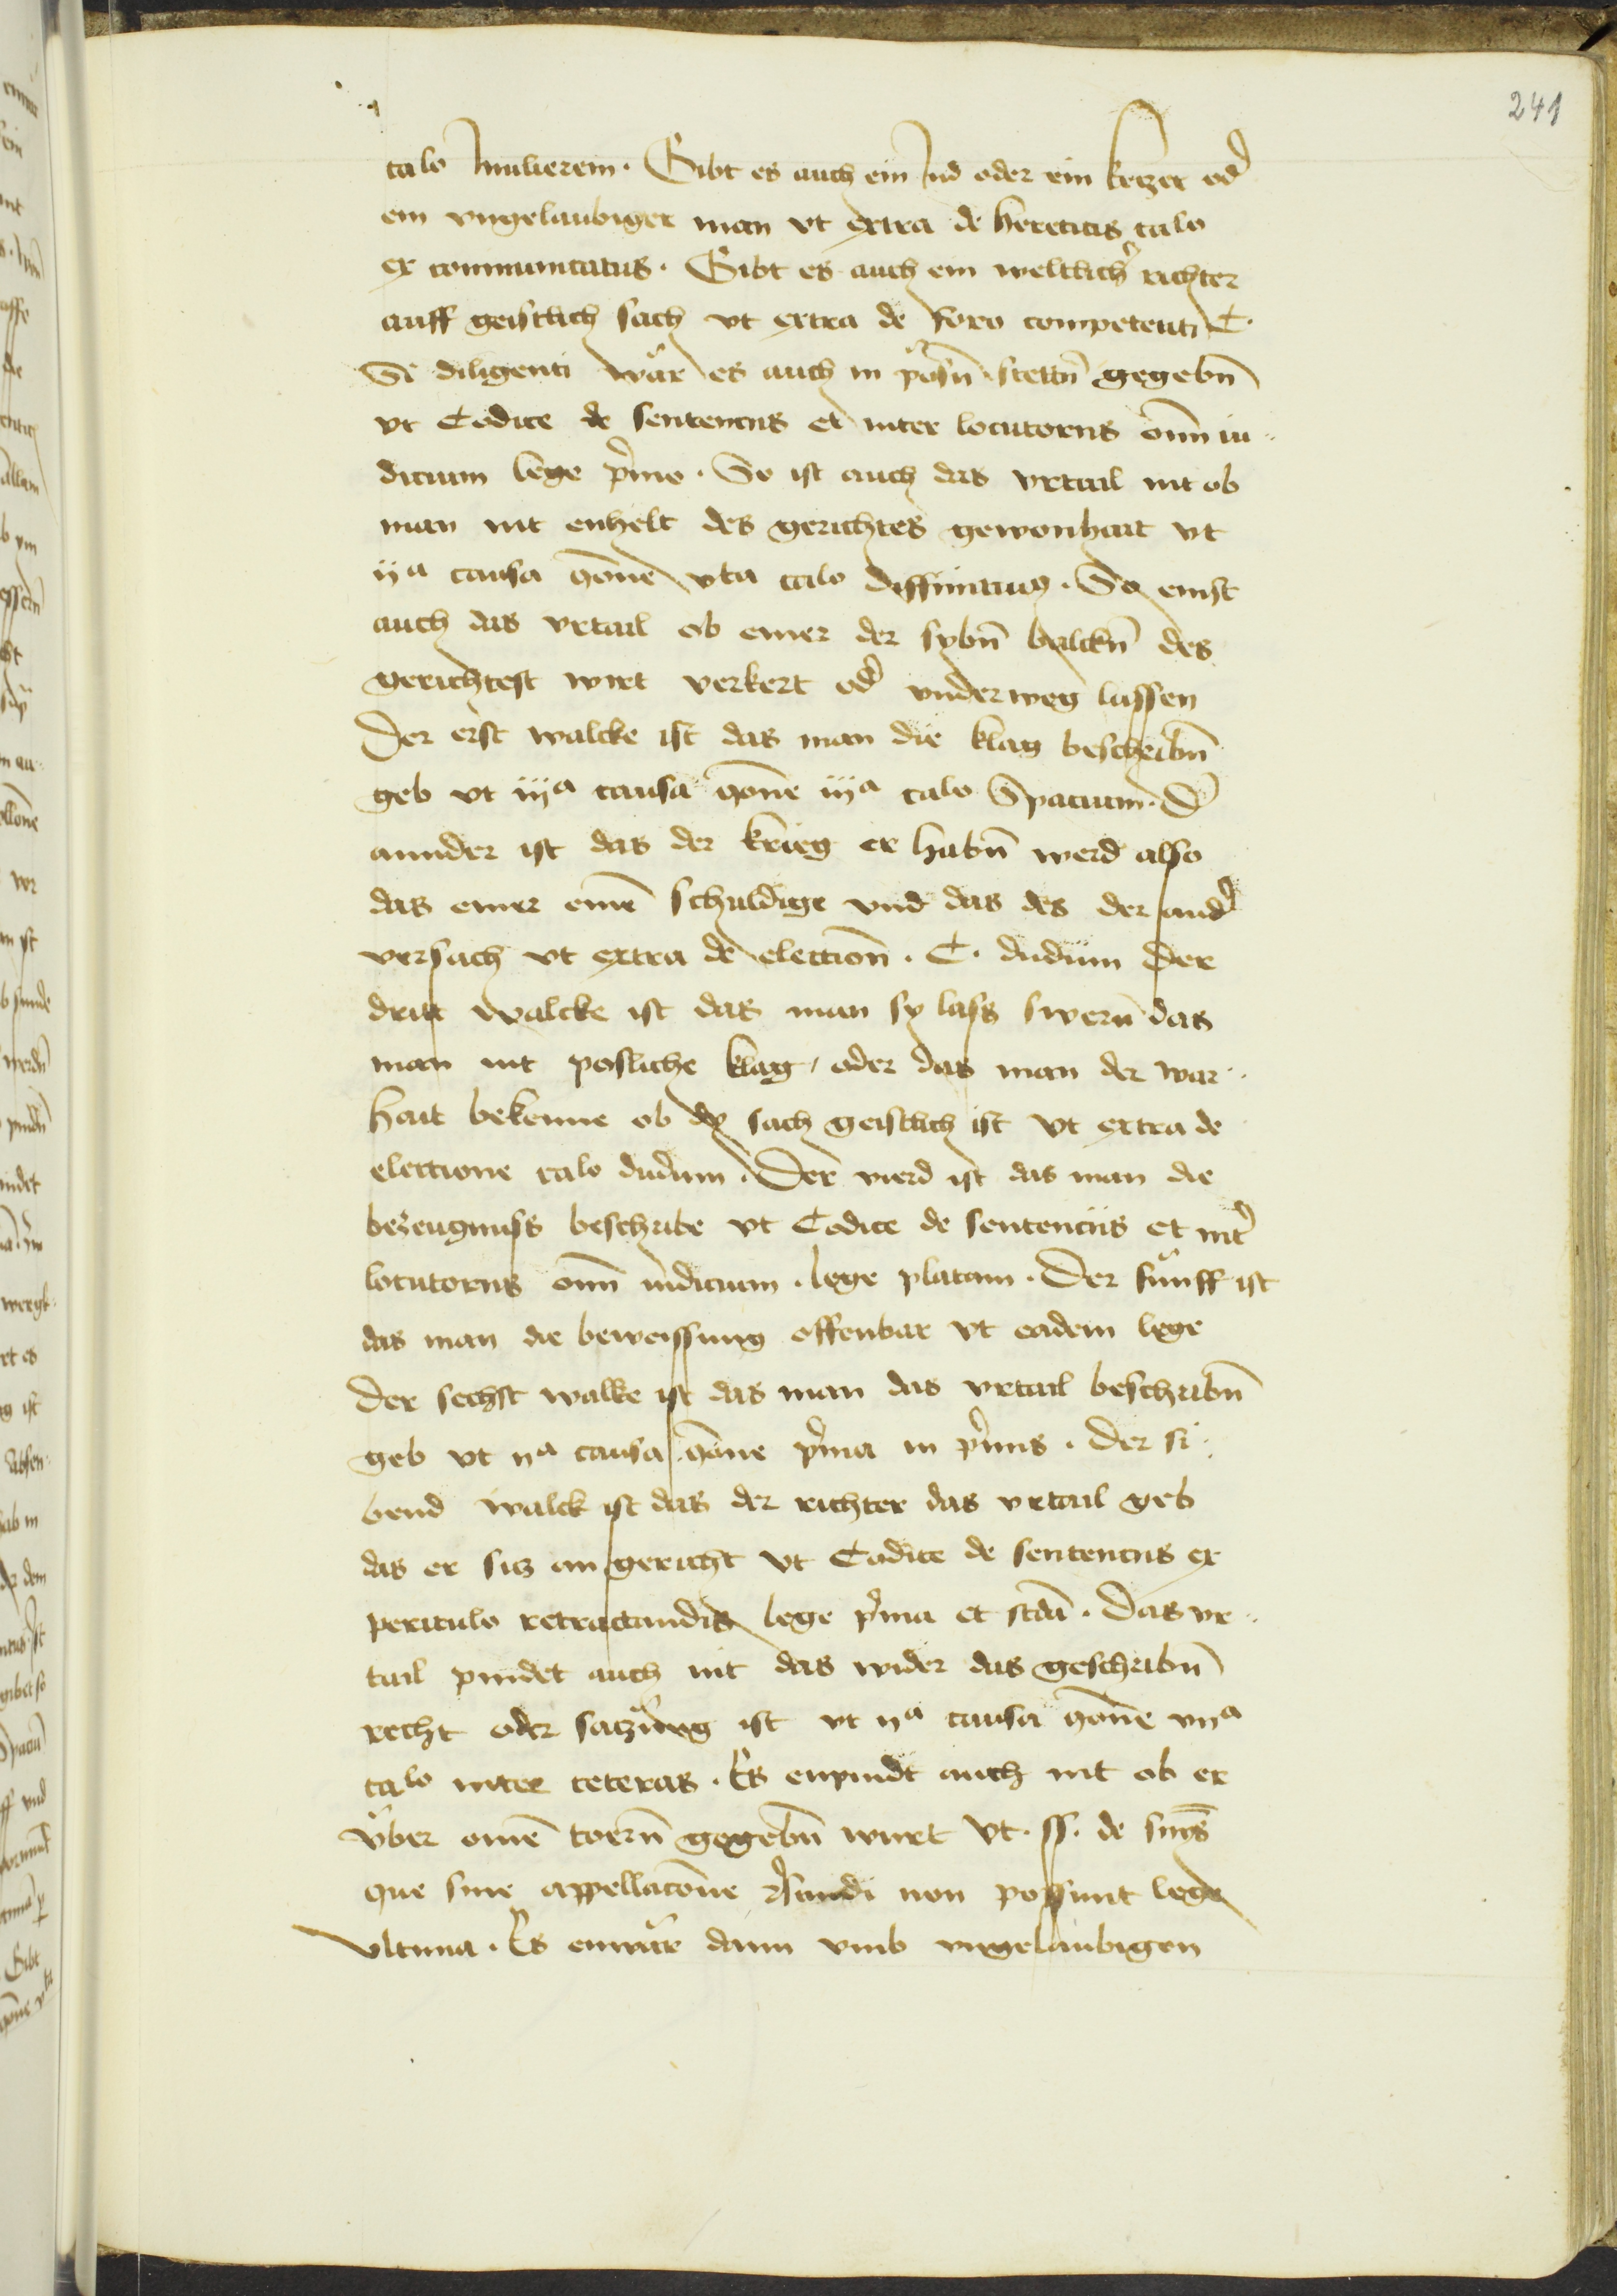 241
calo mulierem. Gibt es auch ein iud oder ein ketzer od̾
ein vngelaubiger man vt extra de hereticis calo
ex communicatus. Gibt es auch ein weltlich̾ richter
auff geistlich sach vt extra de foro competenti C.
Si diligenti wär es auch in pösn̄ stettn̄ gegebn̄
vt Codice de sentencys et inter locutorys oīm iu
dicium lege p̾mo. So ist auch das vrtail nit ob
man nit enhelt des gerichtes gewonhait vt
ijᵃ causa qōne vta calo diffinitiua. So enist
auch das vrtail ob einer der sybn̄ balckn̄ des
gerichtest wirt verkert od̾ vnderweg lassen
Der erst walcke ist das man die klag beschribn̄
geb vt iijᵃ causa qōne iijᵃ calo Spacium. D̾
annder ist das der krieg er habn̄ werd also
das einer einē schuldige vnd das des der and̾
versach vt extra de election̄. C. dudum Der
dritt walcke ist das man sy lass swern̄ das
man nit posliche klag / oder das man der war
hait bekenne ob dy sach geistlich ist vt extra de
electione calo dudum. Der vierd ist das man die
bezeugnuss beschribe vt Codice de sentencijs et int̾
locutorys oīm iudicium. lege platam. Der fünff ist
das man die beweissung offenbar vt eadem lege
Der sechst walke ist das man das vrtail beschribn̄
geb vt ijᵃ causa qōne p̾ma in p̾mis. Der si
bend walck ist das der richter das vrtail geb
das er sitz an gericht vt Codice de sentencys ex
periculo retractandis lege p̾ma et scdā. Das vr
tail pindet auch nit das wider das geschribn̄
recht oder satzung ist vt ijᵃ causa qōne vijᵃ
calo inter ceteras. Es enpindt auch nit ob er
vͤber einē toern̄ gegebn̄ wirt vt. ff. de
que sine appellacōne possunt lege
vltima. Es enwär dann vmb vngelaubigen